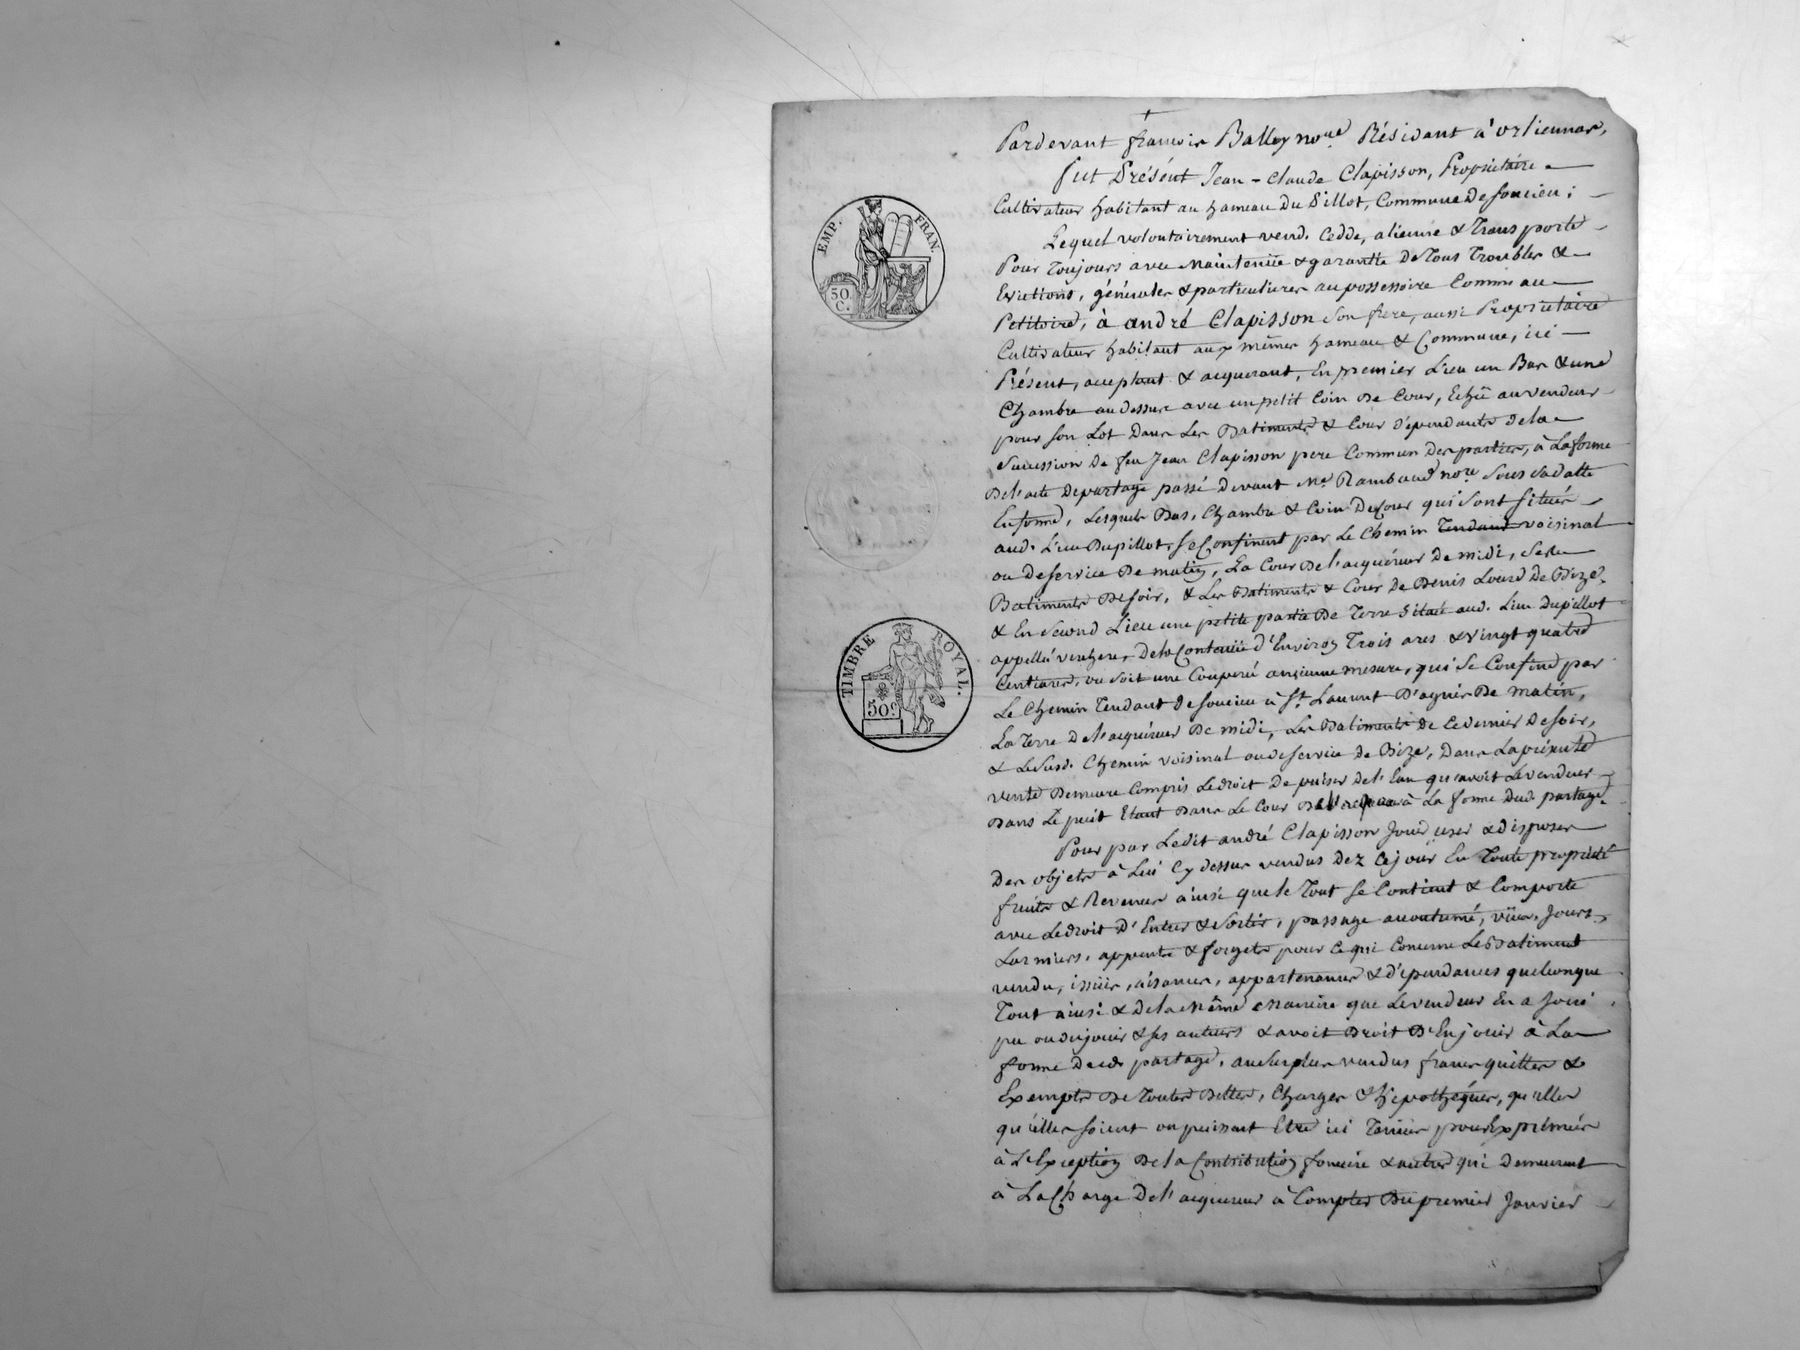 EMP. FRAN.
50.
C.
TIMBRE ROYAL.
50c
Pardevant françois Balley nore Résidant à orliennas,
fut Présent Jean-Claude Clapisson, Propriétaire
Cultivateur habitant au hameau Du Pillot, Commune De soucieu;
Lequel volontairement vend. Cedde, alienne & Transporte
Pour Toujours avec Maintenüe & garantie De Tous Troubles &
Evictions, générales & particulieres au possessoire Comm au
Petitoire, à andré Clapisson son frere, aussi Proprietaire
Cultivateur habitant aux mêmes hameau & Commune, ici
Présent, acceptant & acquerant, En premier Lieu un Bas & une
Chambre au dessus avec un petit Coin De Cour, Echû au vendeur
pour son Lot Dans Les Batiments & Cour d'épendants de la
sucession De feu Jean Clapisson pere Commun Des parties, à La forme
De l'acte De partage passé Devant Me Rambaud nore sous sa datte
En forme, Lesquels Bas, Chambre & Coin De Cour qui sont situés
aud. Lieu Du pillot, se Confinent par Le Chemin Tendant voisinal
ou De service De matin, La Cour De l'acquéreur De midi, ses
Batiments De soir, & Les Batiments & Cour de Denis Lourd De Bize.
& En second Lieu une petite partie De Terre située aud. Lieu Du pillot
appellé verchere, De la Contenüe d'Environ Trois ares & vingt quatre
Centiares, ou soit une Couperée ancienne mesure, qui se Confine par
Le Chemin Tendant De soucieu à St. Laurent D'agnis De matin,
La Terre De l'acquéreur De midi, Les Batiments De Ce dernier De soir,
& Le susd. Chemin voisinal ou de service de Bize, Dans La présente
vente Demeure Compris Le droit De puiser de l'Eau qu'avoit Le vendeur
Dans Le puit Etant Dans Le Cour à La forme Dud. partage.
Pour par Ledit andré Clapisson Jouir user & disposer
Des objets à Lui Cy dessus vendus dez Ce jour En Toute propriété
fruits & Revenus ainsi que le Tout se Contient & Comporte
avec Le droit D'Entrer & sortir, passage accoutumé, vües, Jours,
Larmiers, appents & forgets pour Ce qui Concerne Le Batiment
vendu, issües, aisances, appartenances & d'épendances quelconque
Tout ainsi & de la Même Maniere que Le vendeur En a Joui
pu ou du jouir & ses auteurs & avoit Droit D'En jouir à La
forme Dud. partage, au surplus vendus francs quittes &
Exempts De Toutes Dettes, Charges & hipothéques, qu'elles
qu'elles soient ou puissent Etre ici Tenües pour Exprimées
à L'Exception De la Contribution fonciere & autres qui Demeurent
à La Charge De l'acquereur à Compter Du premier Janvier